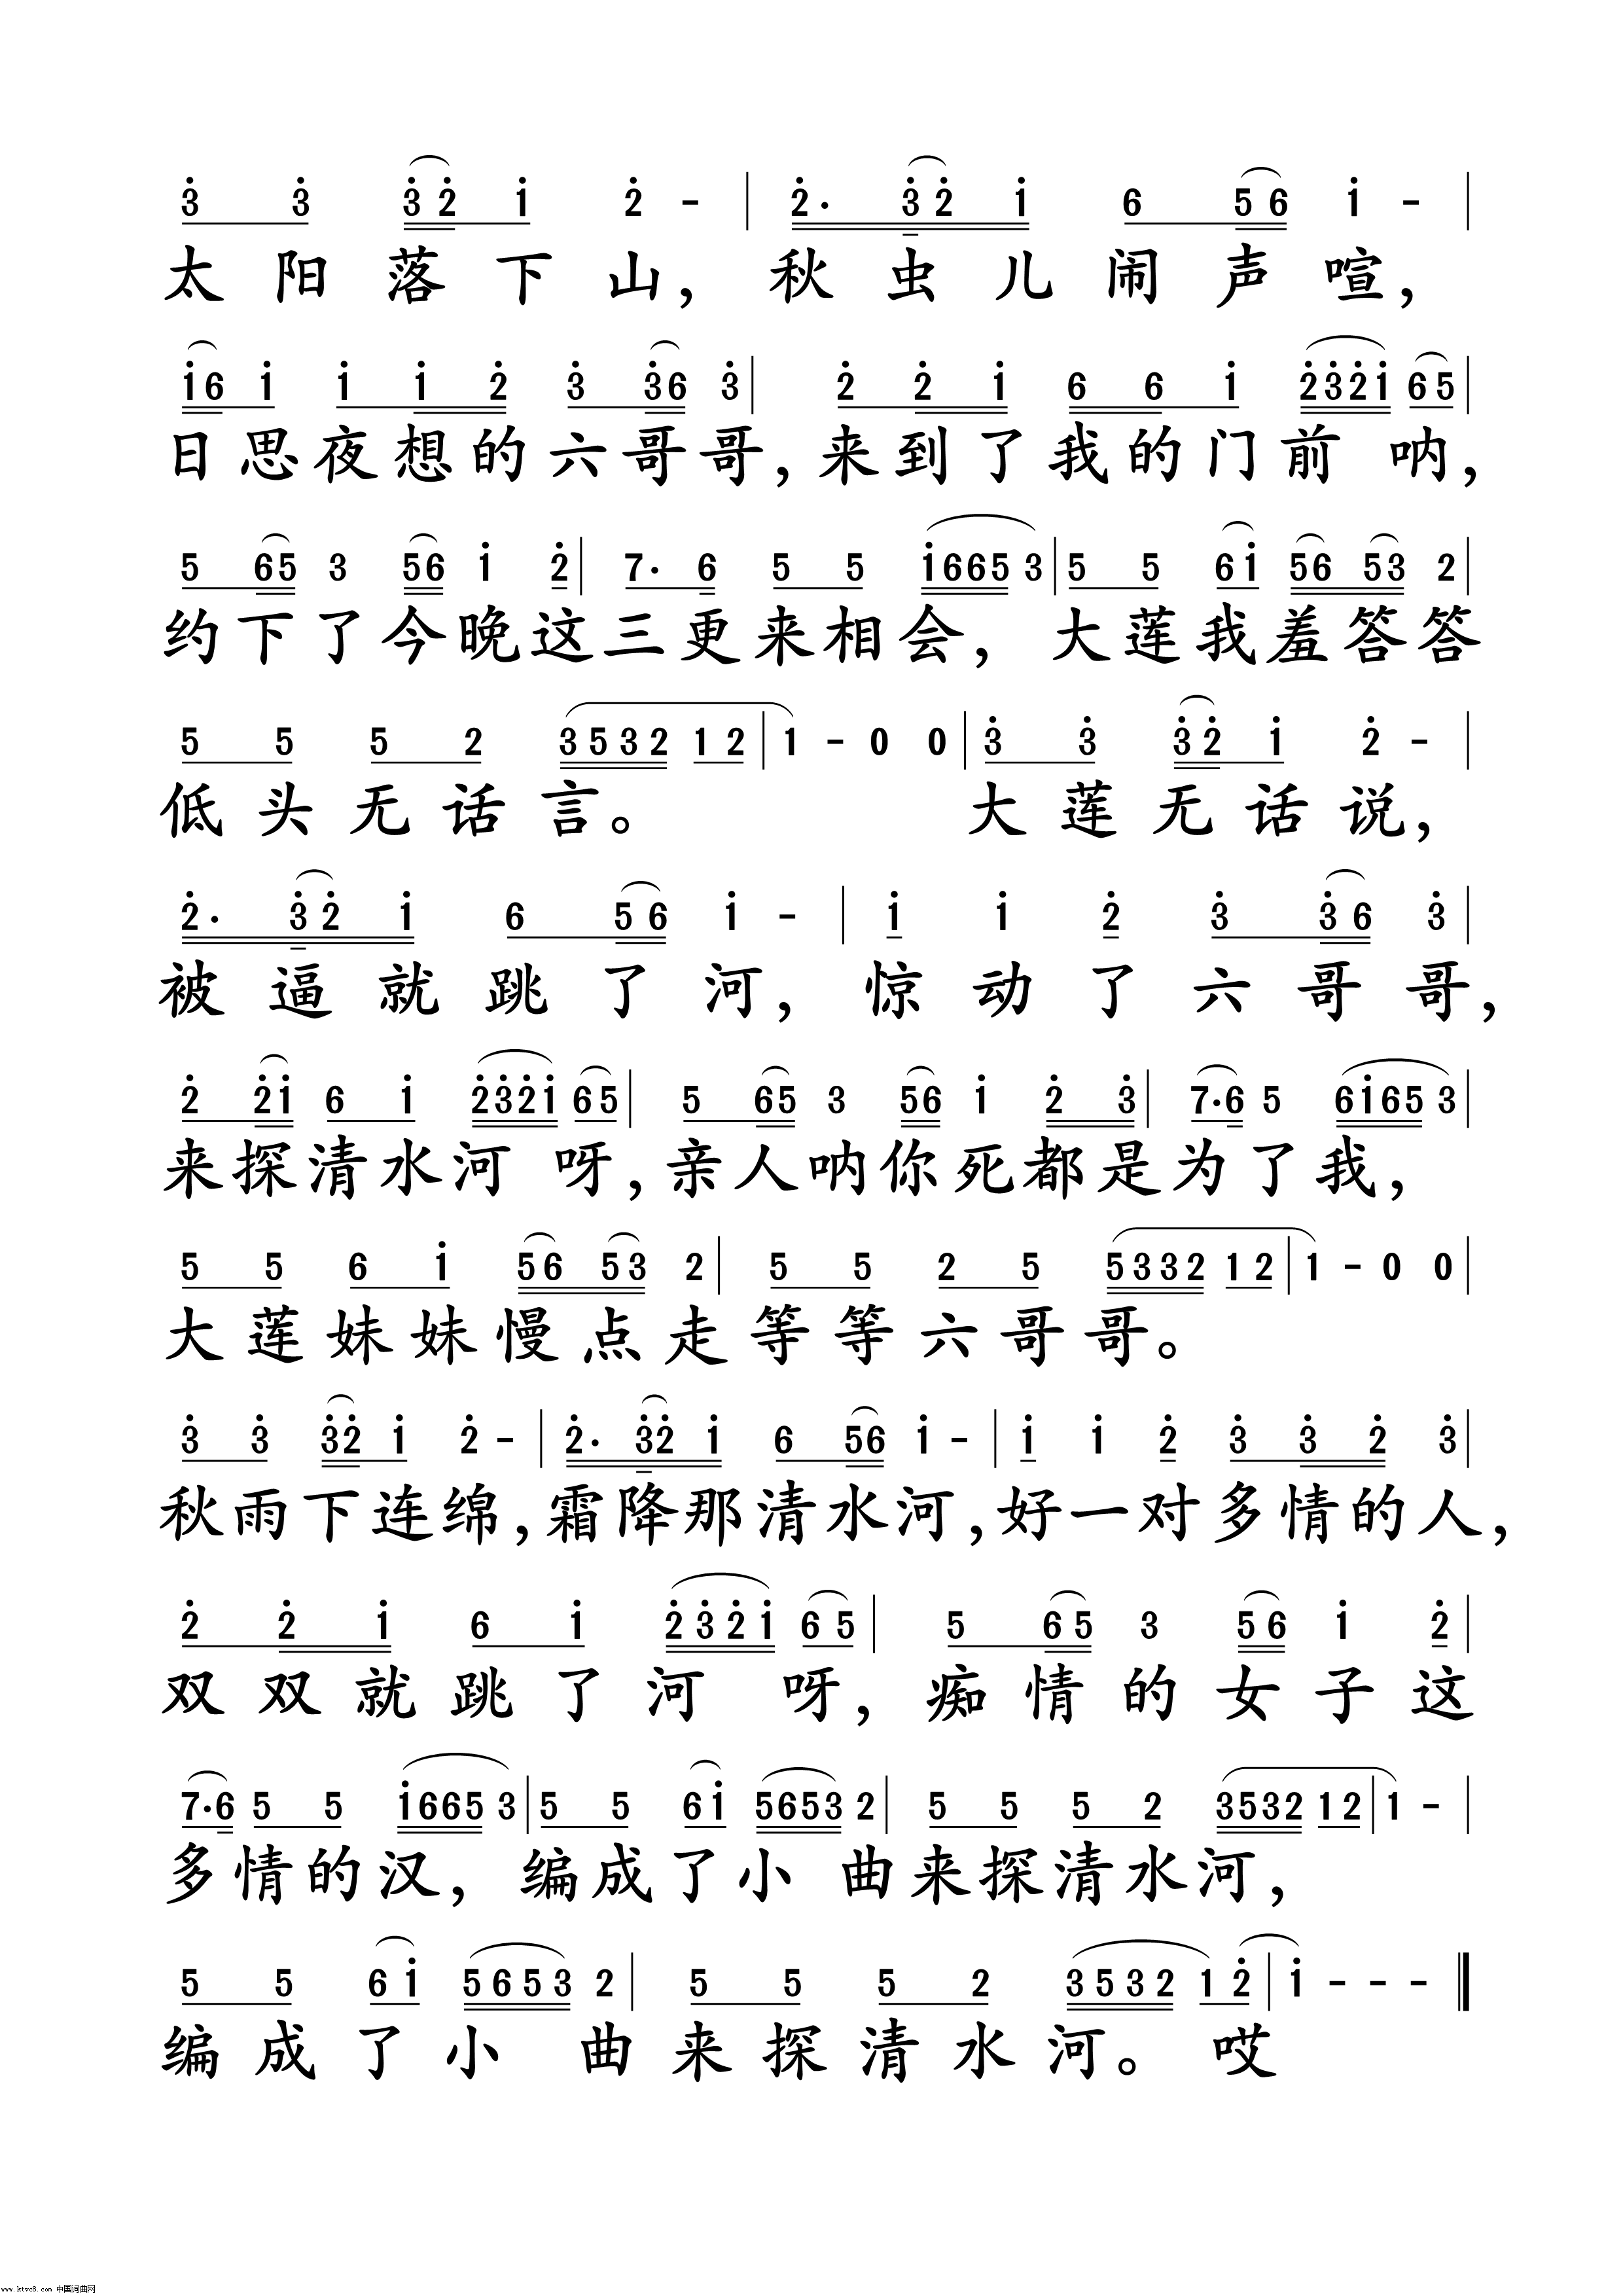 3̇ 3̇ 3̇ 2̇ 1̇ 2̇ - | 2̇. 3̇ 2̇ 1̇ 6 5 6 1̇ - |
太阳落下山，秋虫儿闹声喧，
1̇ 6 1̇ 1̇ 1̇ 2̇ 3̇ 3̇ 6 3̇ | 2̇ 2̇ 1̇ 6 6 1̇ 2̇ 3̇ 2̇ 1̇ 6 5 |
日思夜想的六哥哥，来到了我的门前 呐，
5 6 5 3 5 6 1̇ 2̇ | 7. 6 5 5 1̇ 6 6 5 3 | 5 5 6 1̇ 5 6 5 3 2 |
约下了今晚这三更来相会，大莲我羞答答
5 5 5 2 3 5 3 2 1 2 | 1 - 0 0 | 3̇ 3̇ 3̇ 2̇ 1̇ 2̇ - |
低头无话言。 大莲无话说，
2̇. 3̇ 2̇ 1̇ 6 5 6 1̇ - | 1̇ 1̇ 2̇ 3̇ 3̇ 6 3̇ |
被逼就跳了河，惊动了六哥哥，
2̇ 2̇ 1̇ 6 1̇ 2̇ 3̇ 2̇ 1̇ 6 5 | 5 6 5 3 5 6 1̇ 2̇ 3̇ | 7. 6 5 6 1̇ 6 5 3 |
来探清水河 呀，亲人呐你死都是为了我，
5 5 6 1̇ 5 6 5 3 2 | 5 5 2 5 5 3 3 2 1 2 | 1 - 0 0 |
大莲妹妹慢点走等等六哥哥。
3̇ 3̇ 3̇ 2̇ 1̇ 2̇ - | 2̇. 3̇ 2̇ 1̇ 6 5 6 1̇ - | 1̇ 1̇ 2̇ 3̇ 3̇ 2̇ 3̇ |
秋雨下连绵，霜降那清水河，好一对多情的人，
2̇ 2̇ 1̇ 6 1̇ 2̇ 3̇ 2̇ 1̇ 6 5 | 5 6 5 3 5 6 1̇ 2̇ |
双双就跳了河 呀，痴情的女子这
7. 6 5 5 1̇ 6 6 5 3 | 5 5 6 1̇ 5 6 5 3 2 | 5 5 5 2 3 5 3 2 1 2 | 1 - |
多情的汉，编成了小 曲来探清水河，
5 5 6 1̇ 5 6 5 3 2 | 5 5 5 2 3 5 3 2 1 2̇ | 1̇ - - - ‖
编成了小 曲来探清水河。哎
www.ktvc8.com 中国词曲网